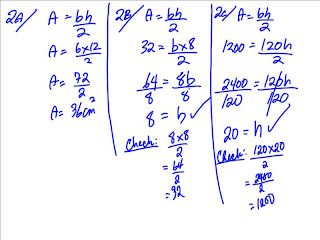 2A/ A = bh/2
A = 6x12/2
A = 72/2
A = 36cm²
2B/ A = bh/2
32 = b x 8/2
64/8 = 8b/8
8 = h ✓
Check: 8x8/2
= 64/2
= 32
2c/ A = bh/2
1200 = 120h/2
2400/120 = 120h/120
20 = h ✓
Check: 120x20/2
= 2400/2
= 1200